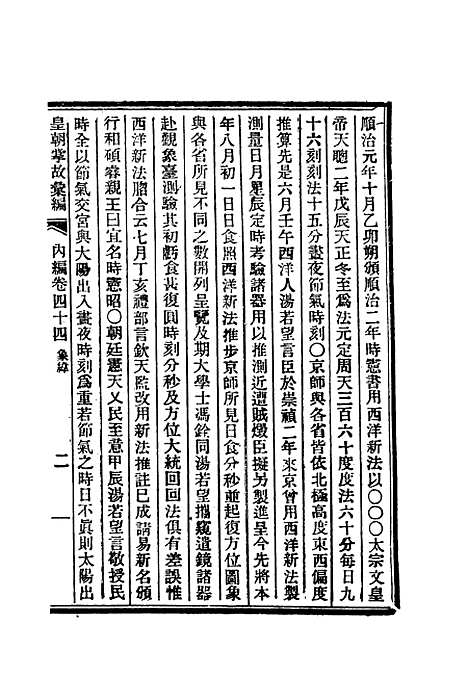 順治元年十月乙卯朔頒順治二年時憲書用西洋新法以〇〇〇太宗文皇
帝天聰二年戊辰天正冬至爲法元定周天三百六十度度法六十分每日九
十六刻刻法十五分晝夜節氣時刻〇京師與各省皆依北極高度東西偏度
推算先是六月壬午西洋人湯若望言臣於崇禎二年來京曾用西洋新法製
測量日月星辰定時考驗諸器用以推測近遭賊燬臣擬另製進呈今先將本
年八月初一日日食照西洋新法推步京師所見日食分秒並起復方位圖象
與各省所見不同之數開列呈覽及期大學士馮銓同湯若望攜窺遠鏡諸器
赴觀象臺測驗其初虧食甚復圓時刻分秒及方位大統回回法俱有差誤惟
西洋新法脗合云七月丁亥禮部言欽天監改用新法推註已成請易新名頒
行和碩睿親王曰宜名時憲昭〇朝廷憲天乂民至意甲辰湯若望言敬授民
時全以節氣交宮與太陽出入晝夜時刻爲重若節氣之時日不眞則太陽出
皇朝掌故彙編 內編卷四十四 象緯 二